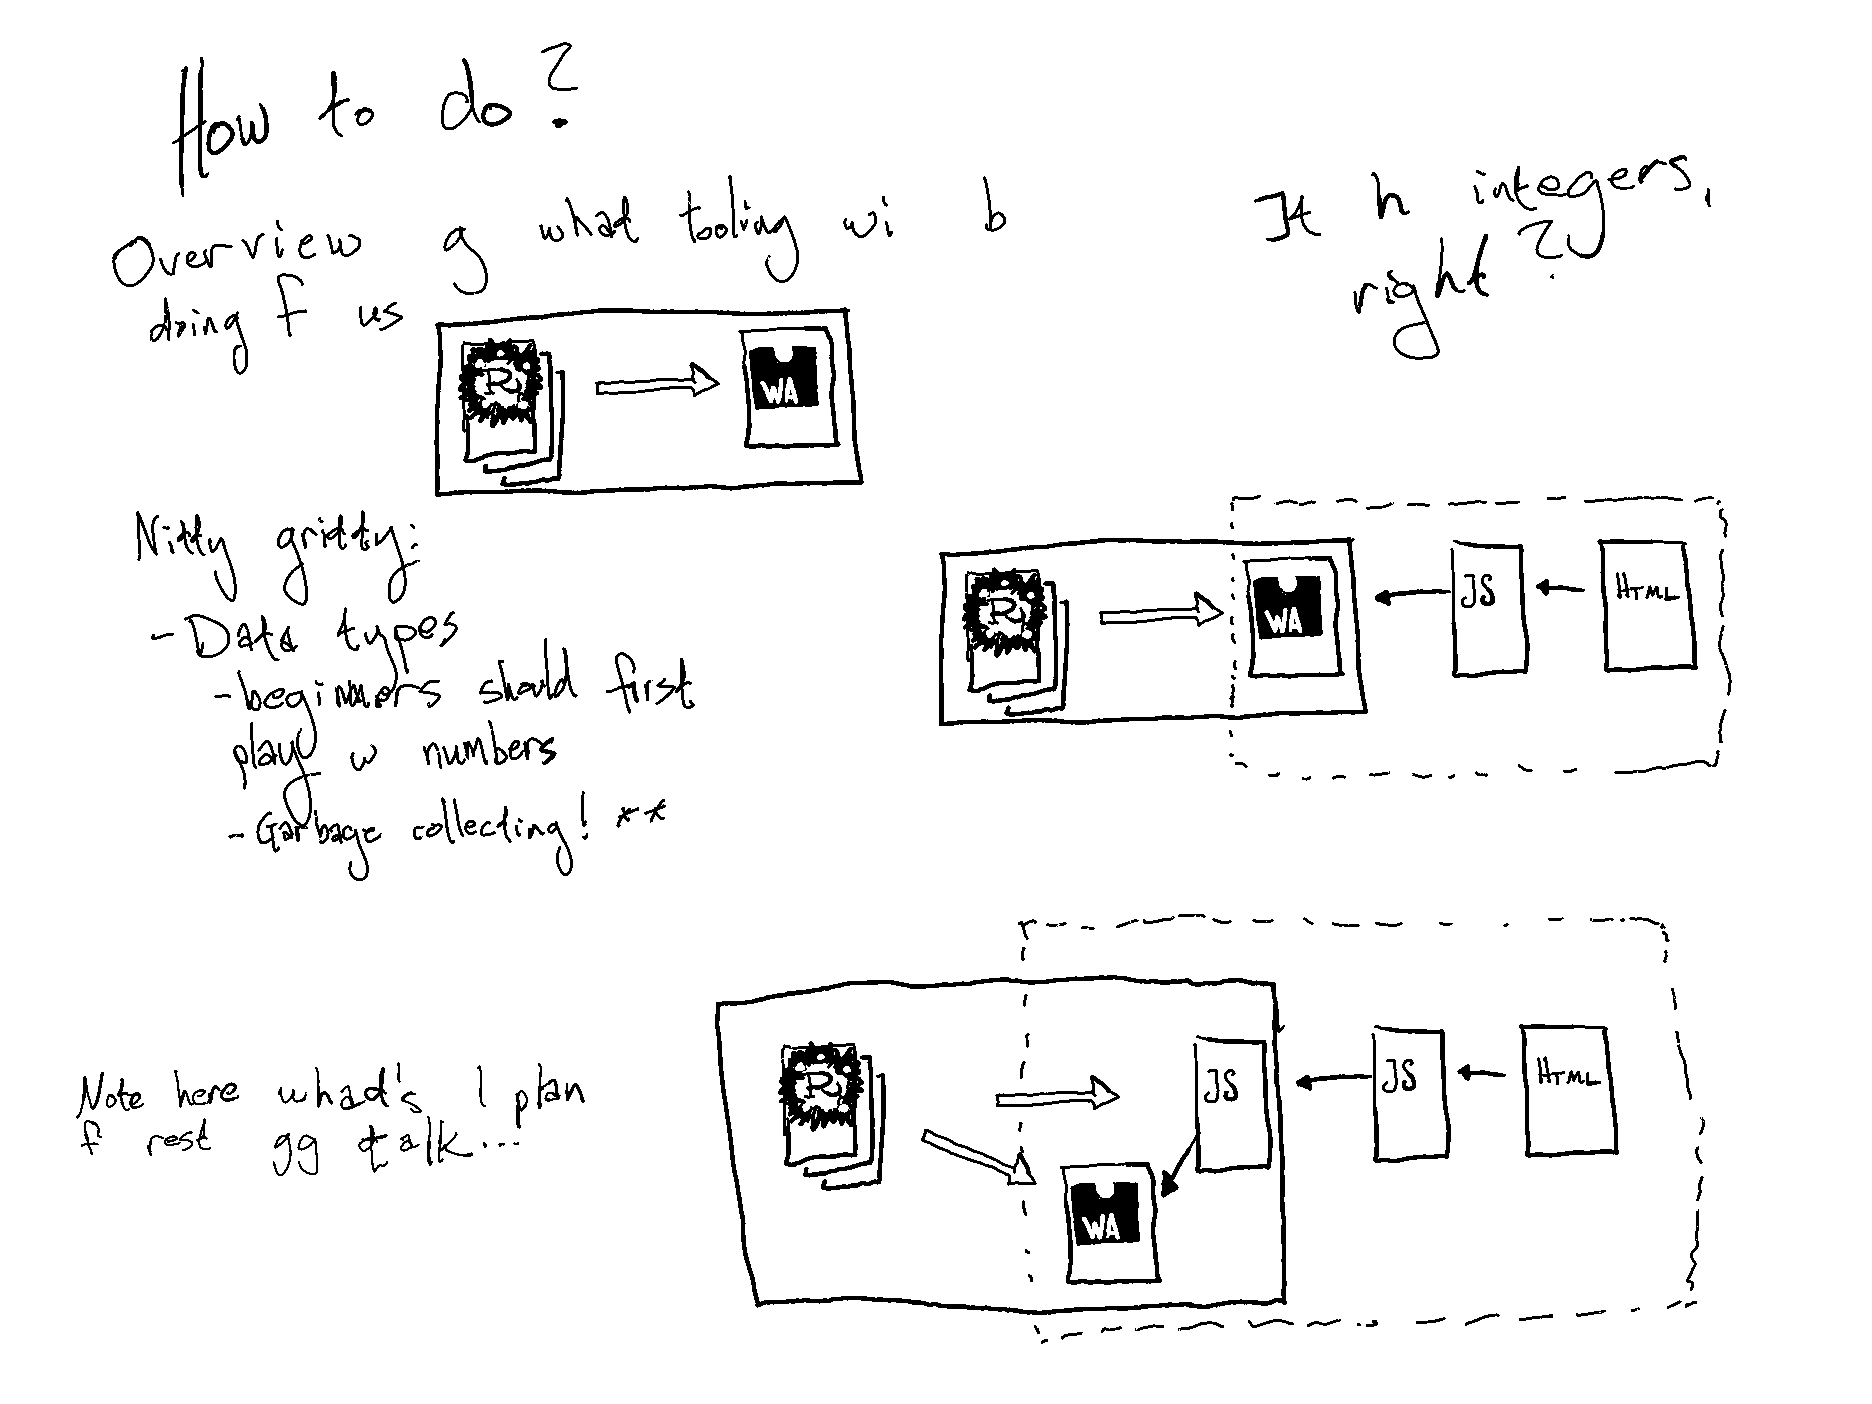 How to do?
Overview g what tooling wi b
doing f us
It h integers,
right?
R
WA
Nitty gritty:
- Data types
- beginners should first
play w numbers
- Garbage collecting! **
R
WA
JS
HTML
Note here what's l plan
f rest gg talk...
R
JS
WA
JS
HTML